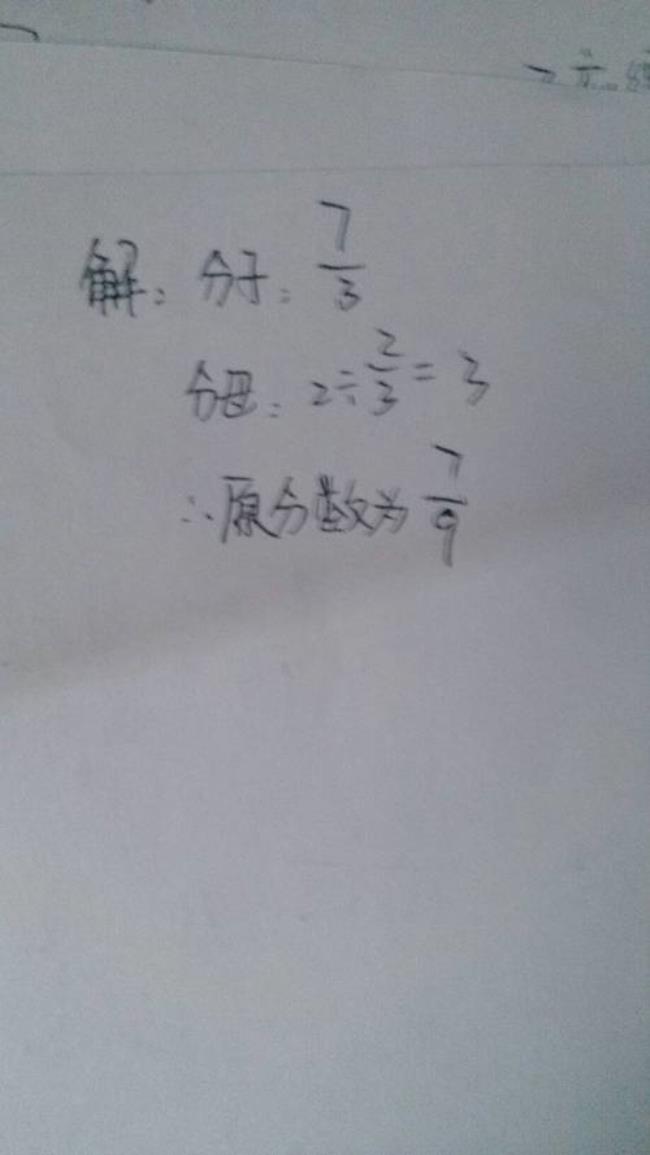 解：分子：7/3
分母：2÷2/3=3
∴原分数为7/9